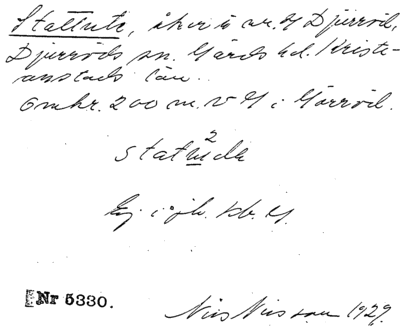 Stattute, åker å nr. 4 Djurröd,
Djurröds sn. Gärds hd. Kristi-
anstads län.
Omkr. 200 m. V 4 i Görröd.
2
statude
Ej i jb.
Nr 5330.
Nils Nilsson 1929.